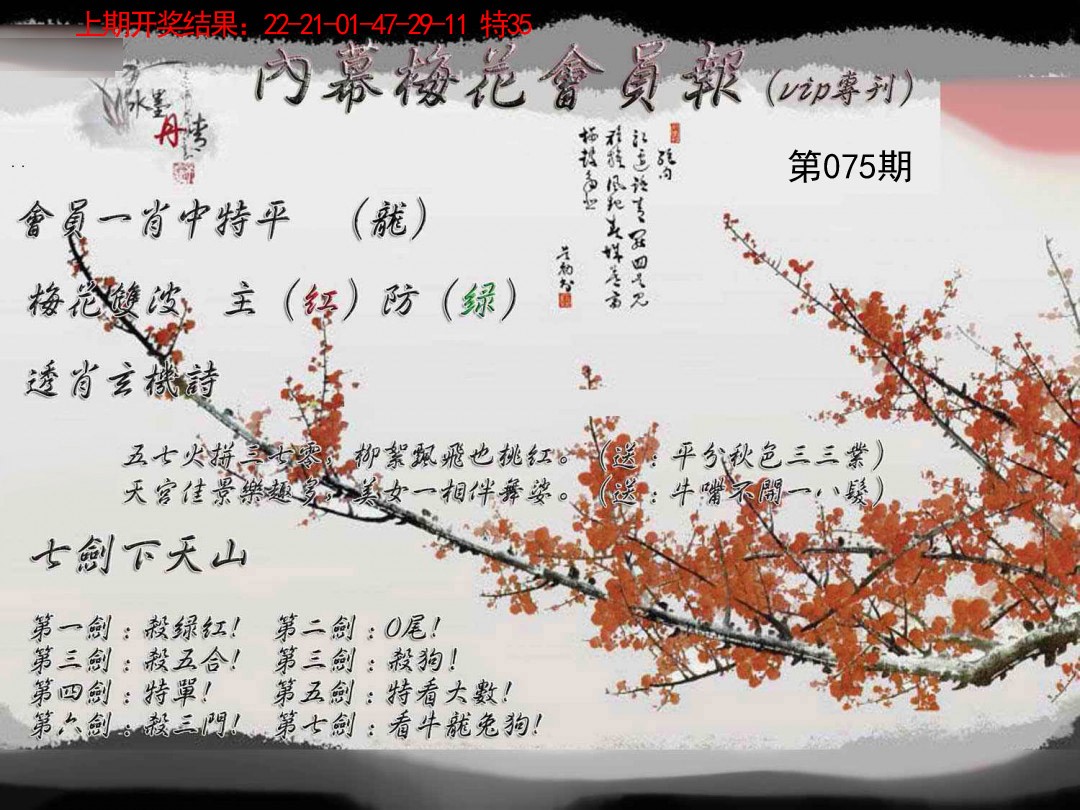 上期开奖结果：22-21-01-47-29-11 特35
內幕梅花會員報（vip專刊）
水墨
丹青
第075期
會員一肖中特平 （龍）
梅花雙波 主（红）防（绿）
透肖玄機詩
五七火拼三七零，柳絮飄飛也桃红。（送：平分秋色三三業）
天宮佳景樂趣多，美女一相伴舞婆。（送：牛嘴不開一八髮）
七劍下天山
第一劍：殺绿红！ 第二劍：0尾！
第三劍：殺五合！ 第三劍：殺狗！
第四劍：特單！ 第五劍：特看大數！
第六劍：殺三門！ 第七劍：看牛龍兔狗！